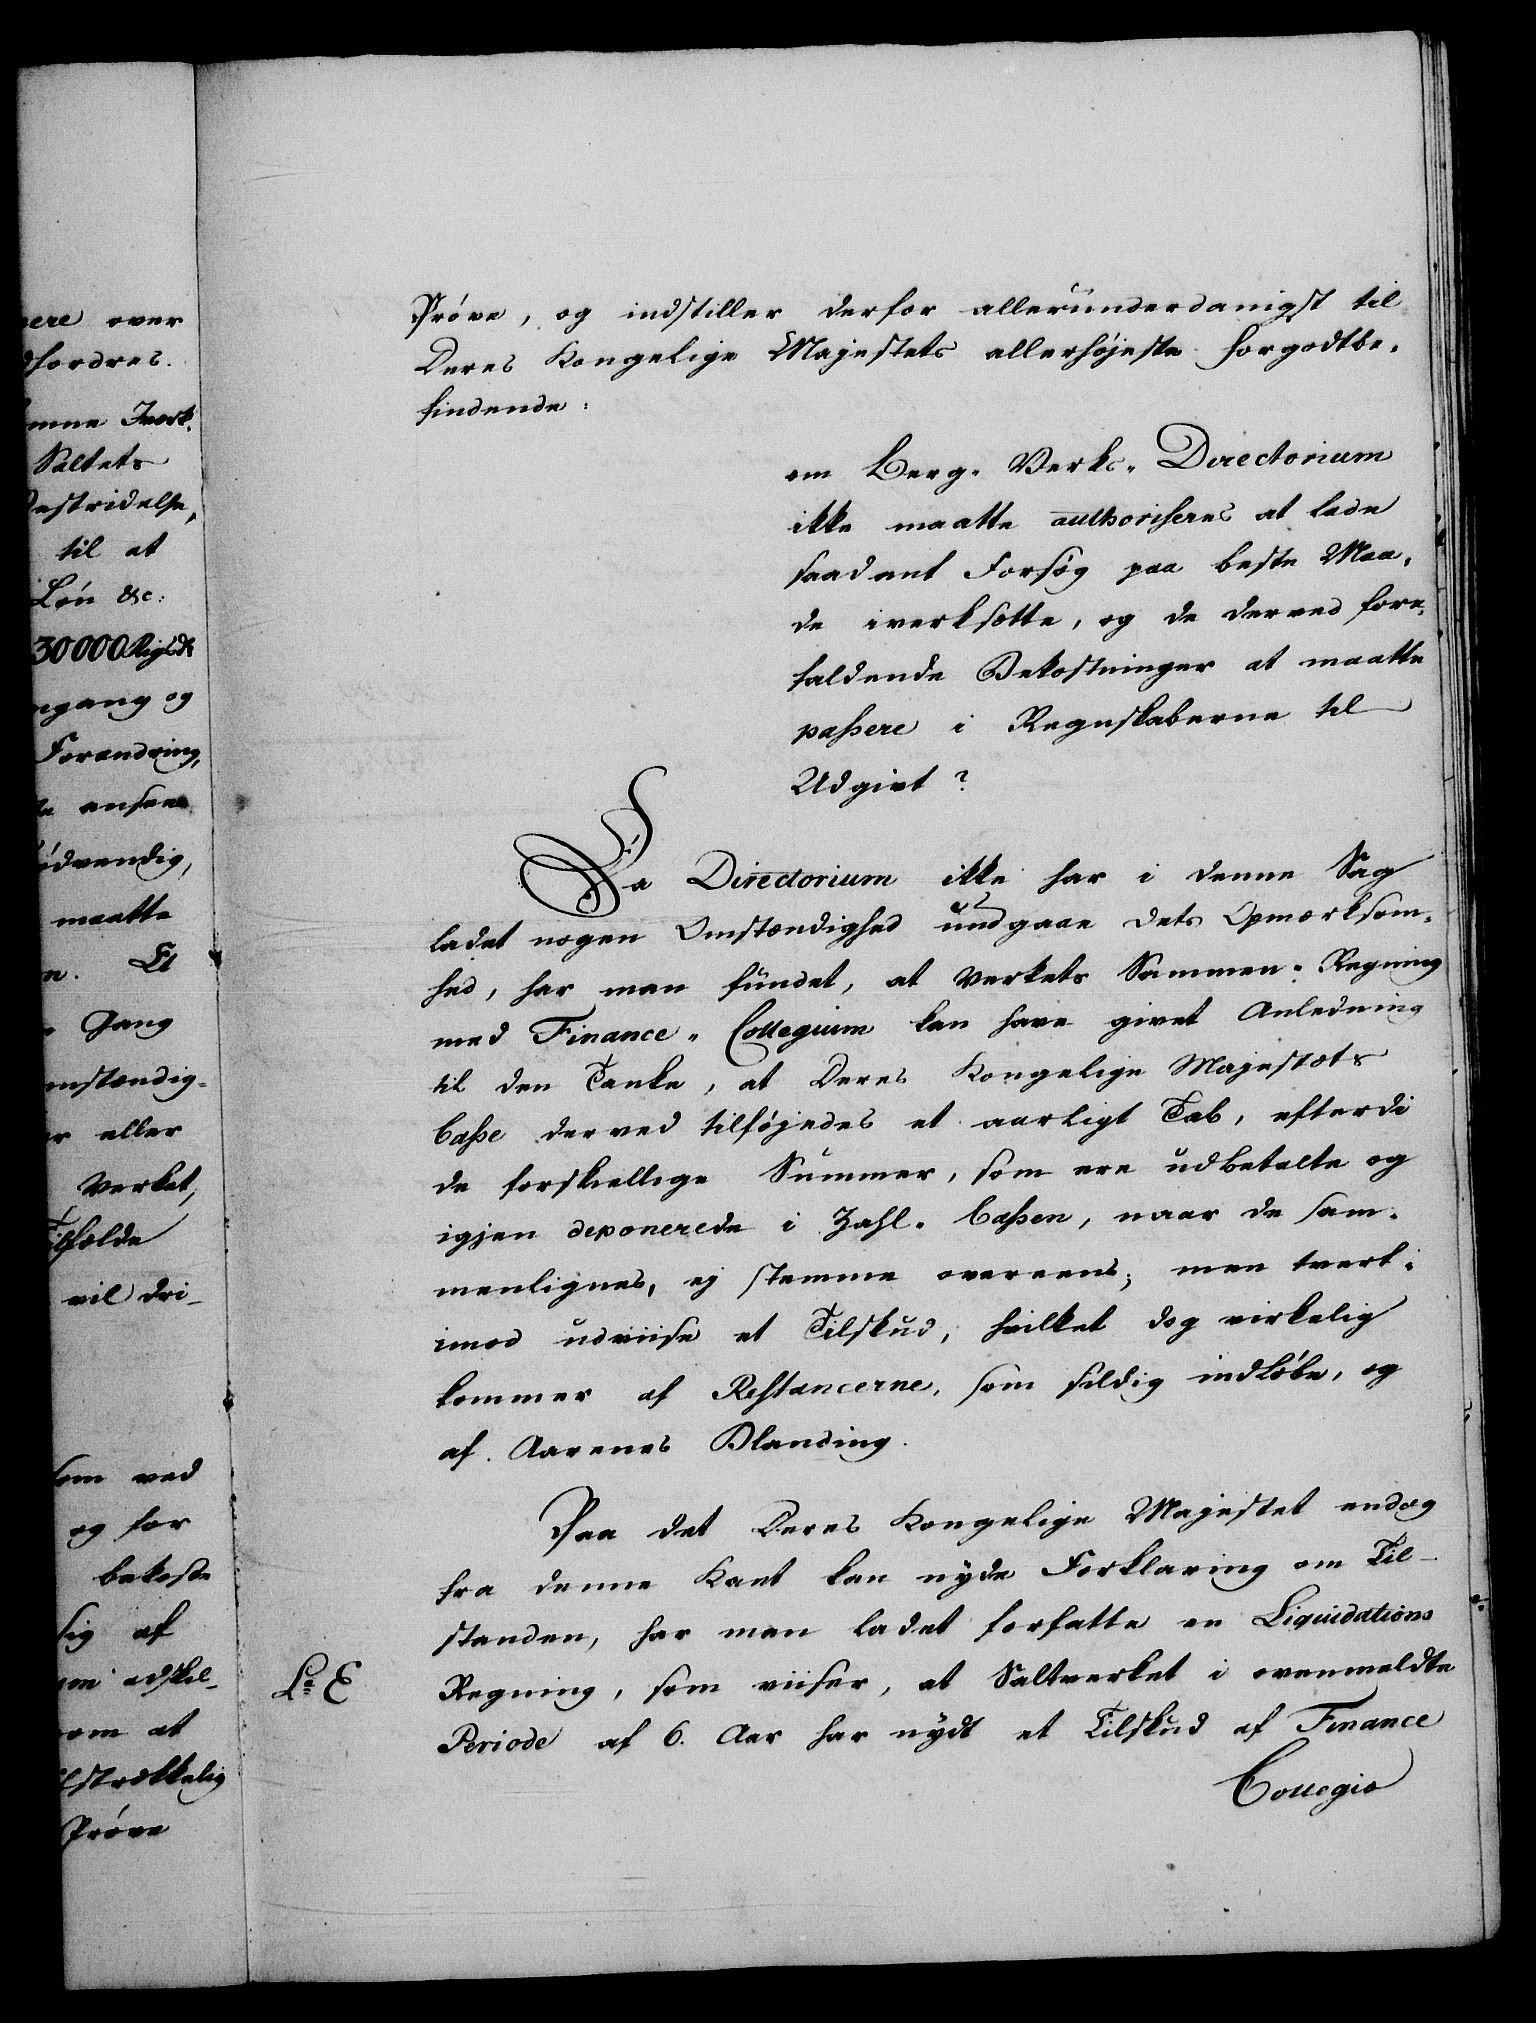 ere over
dfordres.
mme Iværk.
Saltets
bestridelse,
til at
Løn &c:
30000 Rigsd
mgang og
Forandring,
ansees
nødvendig,
maatte
n. Et
Gang
mstændig-
r eller
Verket,
Tilfælde
vil dri-
som ved
og for
bekoste
sig af
adskil-
som at
lstrækkelig
Prøve
Prøve, og indstiller derfor allerunderdanigst til
Deres Kongelige Majestets allerhøjeste Forgodtbe-
findende:
om Berg-Verks-Directorium
ikke maatte authoriseres at lade
saadant Forsøg paa beste Maa-
de iverksætte, og de derved fore-
faldende Bekostninger at maatte
passere i Regnskaberne til
Udgivt?
Da Directorium ikke har i denne Sag
ladet nogen Omstændighed undgaae dets Opmærksom-
hed, har man fundet, at Verkets Sammen-Regning
med Finance-Collegium kan have givet Anledning
til den Tanke, at Deres Kongelige Majestæts
Casse derved tilføjedes et aarligt Tab, efterdi
de forskiellige Summer, som ere udbetalte og
igjen deponerede i Zahl-Cassen, naar de sam-
menlignes, ej stemme overeens; men tvert-
imod udviise et Tilskud, hvilket dog virkelig
kommer af Restancerne, som sildig indløbe, og
af Aarenes Blanding.
Paa det Deres Kongelige Majestet endog
fra denne Kant kan nyde Forklaring om Til-
standen, har man ladet forfatte en Liquidations
La E
Regning, som viiser, at Saltverket i ovenmeldte
Periode af 6. Aar har nydt et Tilskud af Finance
Collegio